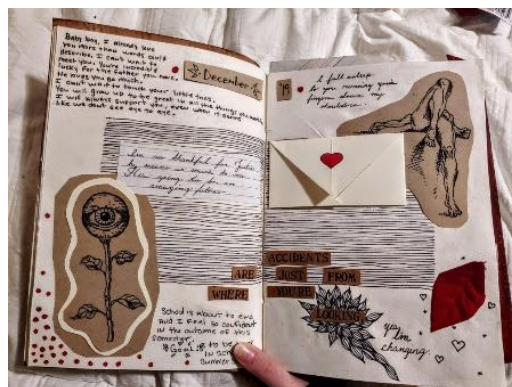 Baby boy, I already love
you more than words could
describe. I can't wait to
meet you. You're incredibly
lucky for the father you have.
He loves you so much.
I can't wait to touch your little toes.
You will grow up to be great in all the things you
I will always support you, even when it seems
like we don't see eye to eye.
December
'19
I fall asleep
to you running your
fingers down my
shoulders.
I'm so thankful for
He's going to be an
amazing father.
ACCIDENTS
ARE JUST FROM
WHERE YOU'RE
LOOKING
School is about to end
and I feel so confident
in the outcome of this
semester.
Goal: to be
in
summer
yes
I'm
changing.